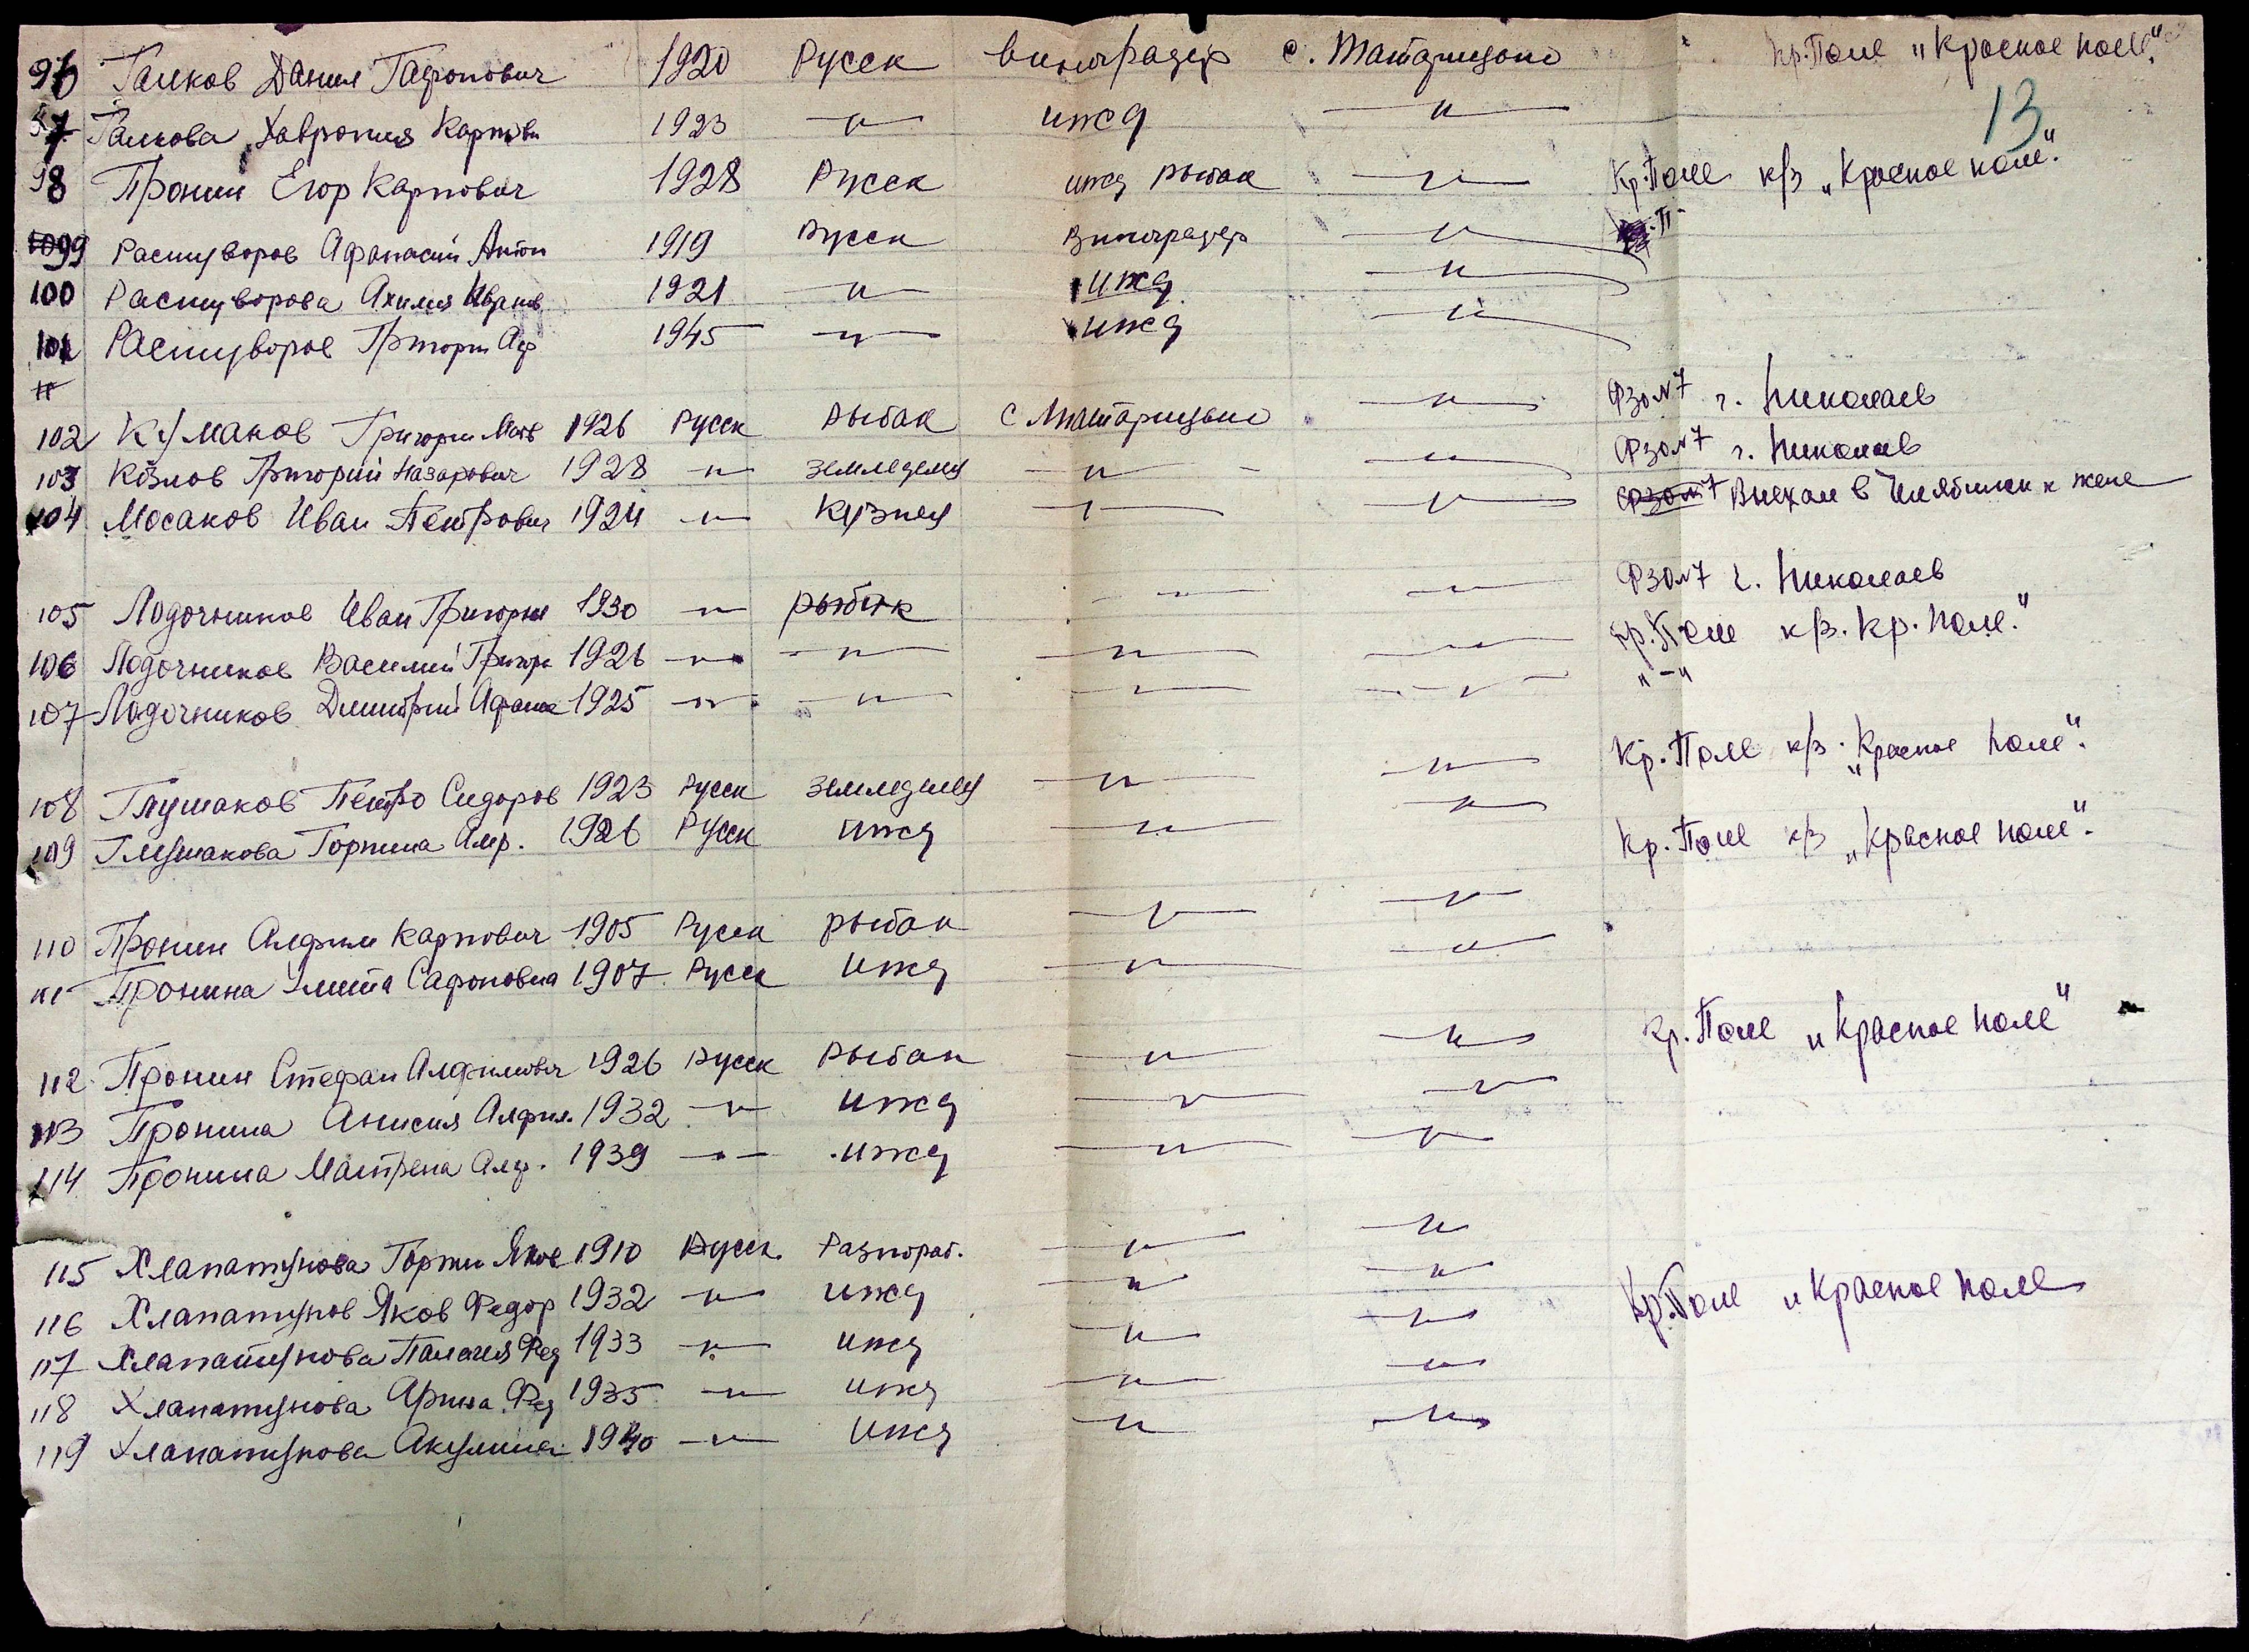 96 Галков Данил Гафонович 1920 Русск виноградер с. Татарицыно Кр. Поле "Красное поле".
97 Галкова Хаврония Карпов 1923 –"– ижд –"–
13
98 Пронин Егор Карпович 1928 Русск ижд рыбак –"– Кр. Поле к/з "Красное поле".
99 Растуворов Афанасий Антон 1919 Русск виноградер –"–
100 Растуворова Ахилия 1921 –"– ижд –"–
101 Растуворов Григори Аф 1945 –"– ижд –"–
102 Кумаков Григори Матв 1926 Русск Рыбак с Татарицыно –"– ФЗО №7 г. Николаев
103 Козлов Григорий Назарович 1928 –"– земледелец –"– –"– ФЗО №7 г. Николаев
104 Мосаков Иван Петрович 1924 –"– Кузнец –"– –"– ФЗО №7 Выехал в Челябинск к жене
105 Лодочников Иван Григорие 1930 –"– рыбак –"– –"– ФЗО №7 г. Николаев
106 Лодочников Василий Григор 1926 –"– –"– –"– –"– Кр. Поле к/з. Кр. Поле".
107 Лодочников Димитрий Афанас 1925 –"– –"– –"– –"– "–"
108 Глушаков Петро Сидоров 1923 Русск земледелец –"– –"– Кр. Поле к/з. "Красное Поле".
109 Глушакова Горпина Алф. 1926 Русск ижд –"– –"– Кр. Поле к/з "Красное поле".
110 Пронин Алфим Карпович 1905 Русск рыбак –"– –"–
111 Пронина Улита Сафоновна 1907 Русск ижд –"– –"–
112 Пронин Стефан Алфимович 1926 Русск Рыбак –"– –"– Кр. Поле "Красное поле"
113 Пронина Анисия Алфим. 1932 –"– ижд –"– –"–
114 Пронина Матрена Алф. 1939 –"– ижд –"– –"–
115 Хлапатунова Горпин Яков 1910 Русск Разнораб. –"– –"–
116 Хлапатунов Яков Федор 1932 –"– ижд –"– –"– Кр. Поле "Красное поле
117 Хлапатунова Палагия Фед 1933 –"– ижд –"– –"–
118 Хлапатунова Арина Фед 1935 –"– ижд –"– –"–
119 Хлапатунова Акулина 1940 –"– ижд –"– –"–